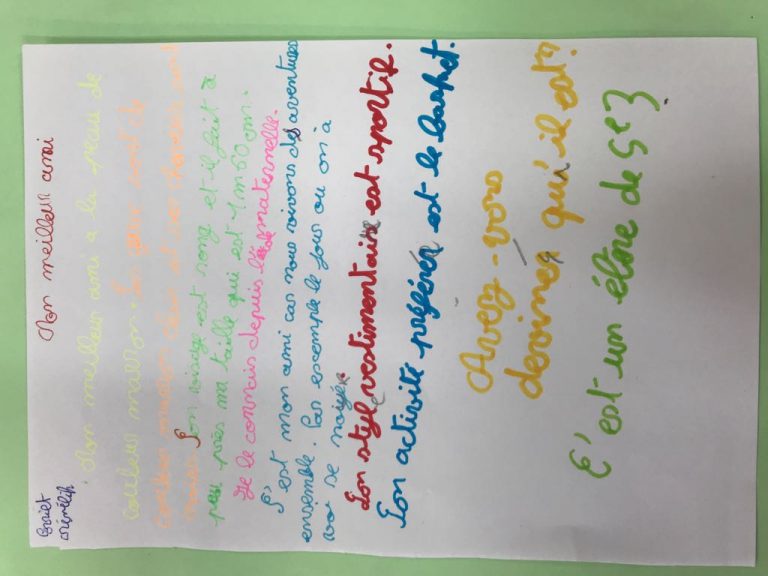 Mon meilleur ami
Mon meilleur ami a la peau de
couleur marron. Ses yeux sont de
couleur marron clair et ses cheveux sont
noirs. Son visage est rong et il fait à
peu près ma taille qui est 1m50cm.
Je le connais depuis la maternelle.
S'est mon ami car nous vivons des aventures
ensemble. Par escemple le jour ou on à
se noyer.
Son style vestimentaire est sportif.
Son activité préférér est le basket.
Avez-vous
deviner qui il est?
C'est un élève de 5e3